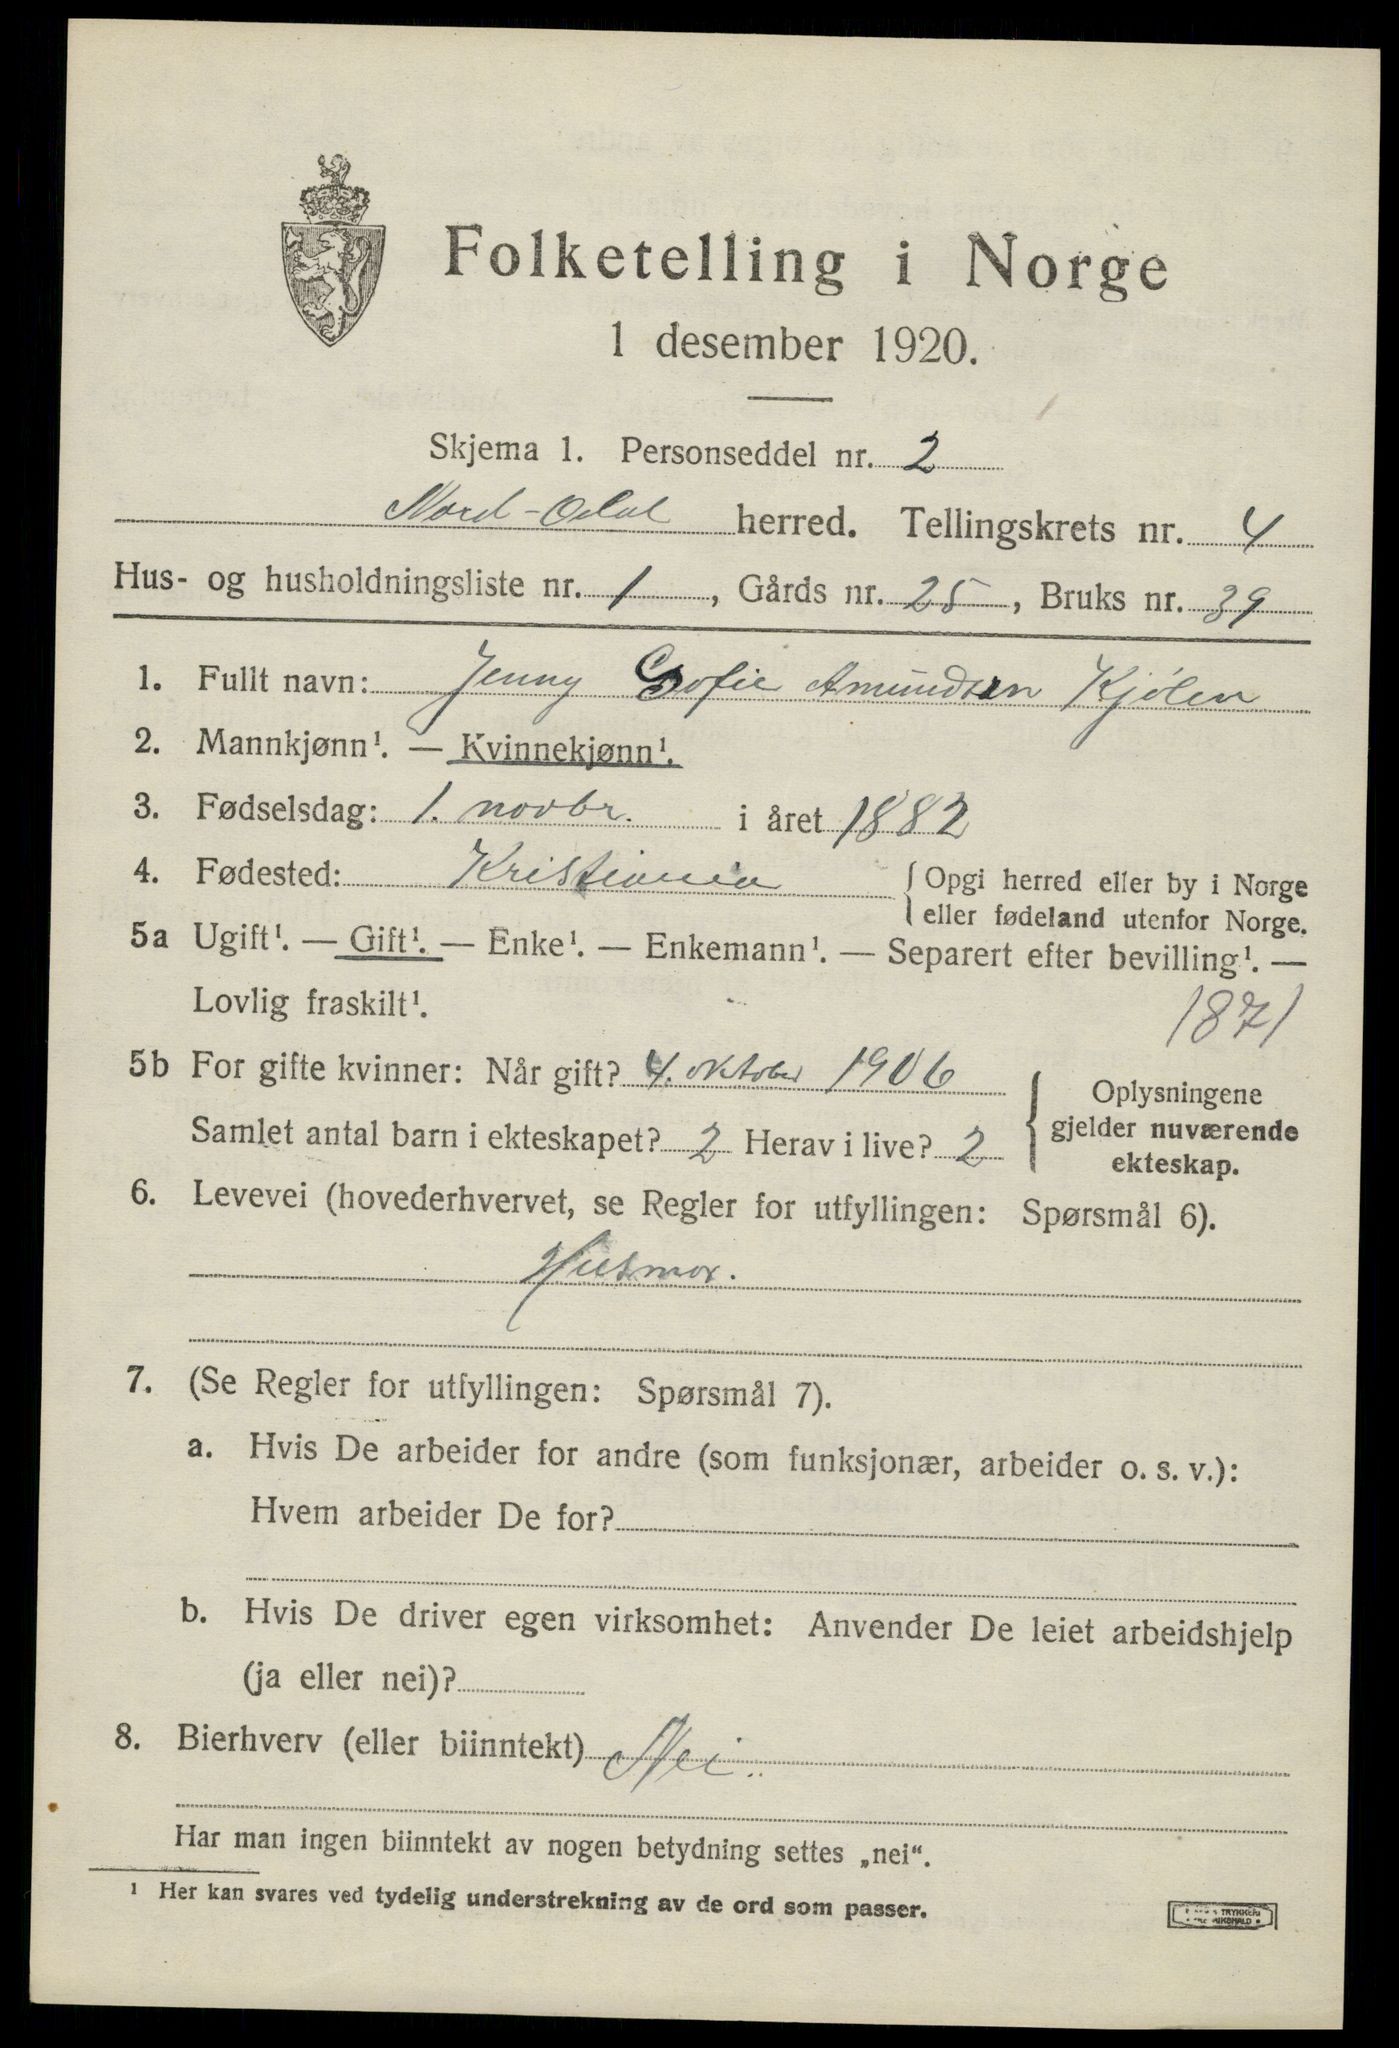 Folketelling i Norge
1 desember 1920.
Skjema 1. Personseddel nr. 2
Nord-Odal herred. Tellingskrets nr. 4
Hus- og husholdningsliste nr. 1, Gårds nr. 25, Bruks nr. 39
1. Fullt navn: Jenny Sofie Amundsen Kjölen
2. Mannkjønn¹. — Kvinnekjønn¹.
3. Fødselsdag: 1. novbr. i året 1882
4. Fødested: Kristiania { Opgi herred eller by i Norge
eller fødeland utenfor Norge.
5a Ugift¹. — Gift¹. — Enke¹. — Enkemann¹. — Separert efter bevilling¹. —
Lovlig fraskilt¹.
1871
5b For gifte kvinner: Når gift? 4. oktober 1906
Samlet antal barn i ekteskapet? 2 Herav i live? 2
{ Oplysningene
gjelder nuværende
ekteskap.
6. Levevei (hovederhvervet, se Regler for utfyllingen: Spørsmål 6).
Husmor.
7. (Se Regler for utfyllingen: Spørsmål 7).
a. Hvis De arbeider for andre (som funksjonær, arbeider o. s. v.):
Hvem arbeider De for?
b. Hvis De driver egen virksomhet: Anvender De leiet arbeidshjelp
(ja eller nei)?
8. Bierhverv (eller biinntekt) Nei.
Har man ingen biinntekt av nogen betydning settes „nei“.
¹ Her kan svares ved tydelig understrekning av de ord som passer.